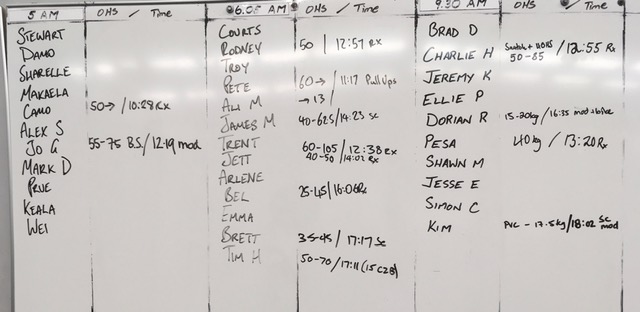 5 AM OHS / Time
STEWART
DAMO
SHARELLE
MAKAELA
CAMO 50→ / 10:28 RX
ALEX S
JO G 55-75 B.S. / 12:19 mod
MARK D
PRUE
KEALA
WEI
6.05 AM OHS / Time
COURTS
RODNEY 50 / 12:57 RX
TROY
PETE 60→ / 11:17 Pull Ups
ALI M →13 /
JAMES M 40-62.5 / 14:23 SC
TRENT 60-105 / 12:38 RX
JETT 40-50 / 14:02 RX
ARLENE
BEL 25-45 / 16:06 Rx
EMMA
BRETT 35-45 / 17:17 Sc
TIM H 50-70 / 17:11 (15 C2B)
9.30 AM OHS / Time
BRAD D
CHARLIE H 50-65 / 12:55 Rx
JEREMY K
ELLIE P
DORIAN R 15-20kg / 16:35 mod
PESA 40kg / 13:20 Rx
SHAWN M
JESSE E
SIMON C
KIM PVC - 17.5kg / 18:02 SC mod